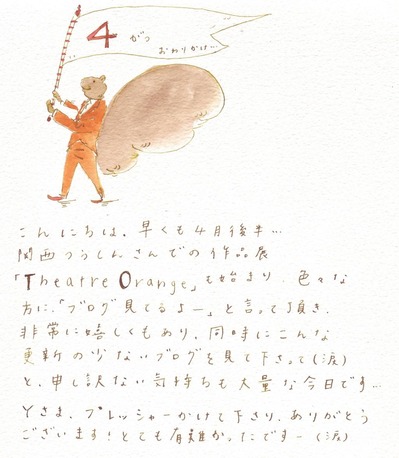 4 がつ
おわりかけ...
こんにちは、早くも4月後半...
関西つうしんさんでの作品展
「Theatre Orange」も始まり、色々な
方に、「ブログ見てるよー」と言って頂き、
非常に嬉しくもあり、同時にこんな
更新の少ないブログを見て下さって(涙)
と、申し訳ない気持ちも大量な今日です...
Yさま、プレッシャーかけて下さり、ありがとう
ございます!とても有難かったですー(涙)